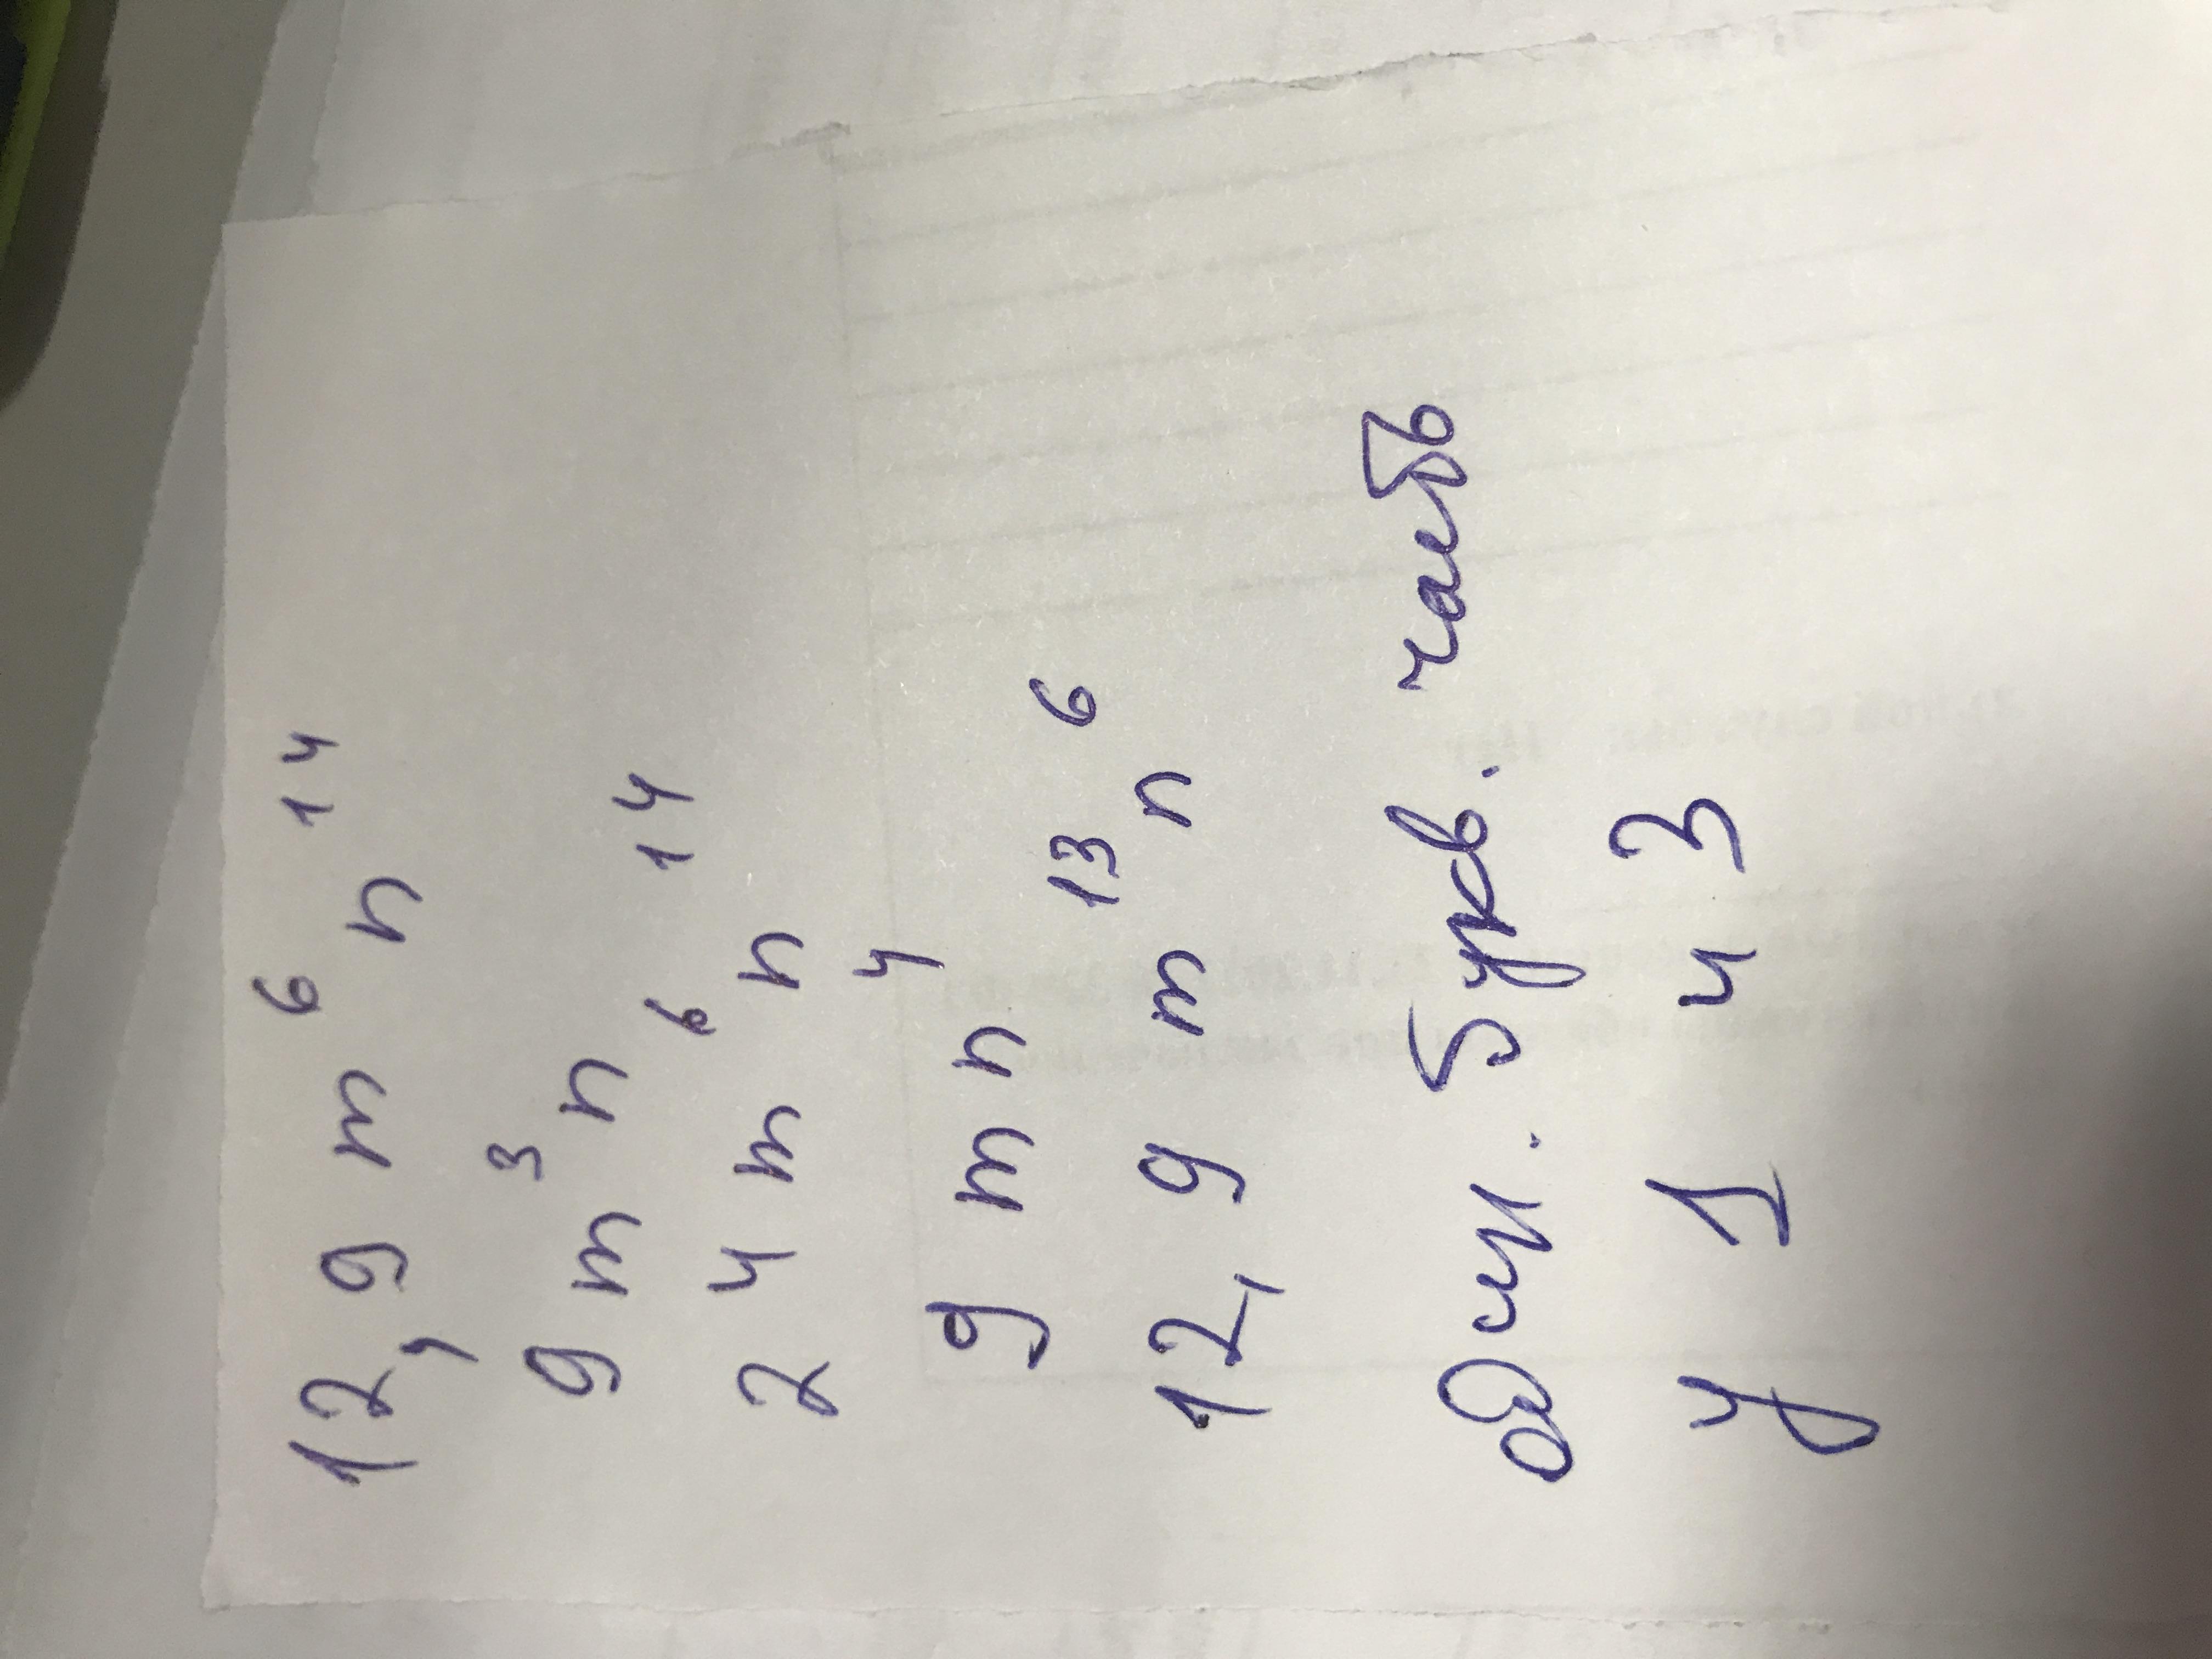 12,9 m⁶ n¹⁴
9 m³ n⁶
24 m⁶ n¹⁴
9 m n⁴
12,9 m¹³ n⁶
Один. букв. часть
у 1 и 3